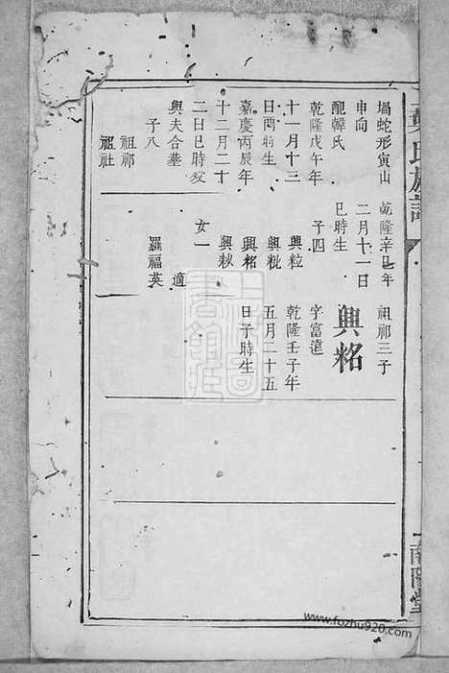 氏族譜
塲蛇形寅山
申向
配韓氏
乾隆戊午年
十一月十三
日酉時生
嘉慶丙辰年
十二月二十
二日巳時歿
與夫合塟
子八
祖祁
祖社
乾隆辛巳年
二月十一日
巳時生
子四
興粒
興粃
興
興
女一
適
羅福英
祖祁三子
興
字富遠
乾隆壬子年
五月二十五
日子時生
南陽堂
www.fozhu920.com